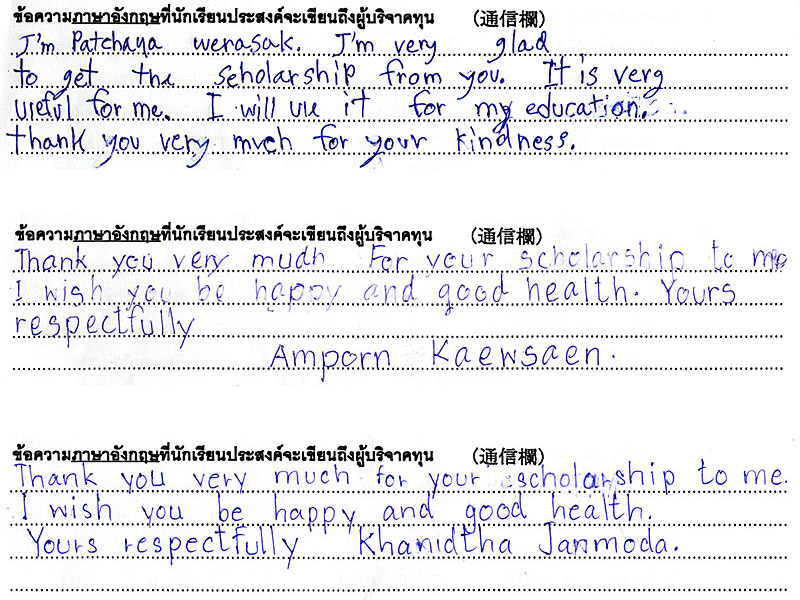 ข้อความภาษาอังกฤษที่นักเรียนประสงค์จะเขียนถึงผู้บริจาคทุน (通信欄)
I'm Patchaya werasak. I'm very glad
to get the scholarship from you. It is very
useful for me. I will use it for my education.
thank you very much for your kindness.
ข้อความภาษาอังกฤษที่นักเรียนประสงค์จะเขียนถึงผู้บริจาคทุน (通信欄)
Thank you very mudh For your scholarship to me
I wish you be happy and good health. Yours
respectfully
Amporn Kaewsaen.
ข้อความภาษาอังกฤษที่นักเรียนประสงค์จะเขียนถึงผู้บริจาคทุน (通信欄)
Thank you very much for your scholarship to me.
I wish you be happy and good health.
Yours respectfully Khanidtha Janmoda.